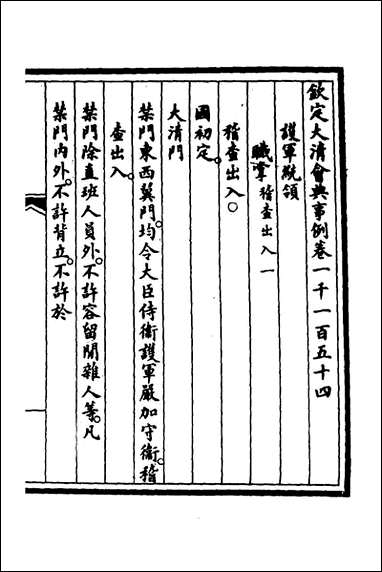 欽定大清會典事例卷一千一百五十四
護軍統領
職掌稽查出入一
稽查出入○
國初定。
大清門
禁門東西翼門。均令大臣侍衞護軍嚴加守衞。稽
查出入。
禁門除直班人員外。不許容留閒雜人等。凡
禁門內外。不許背立。不許於